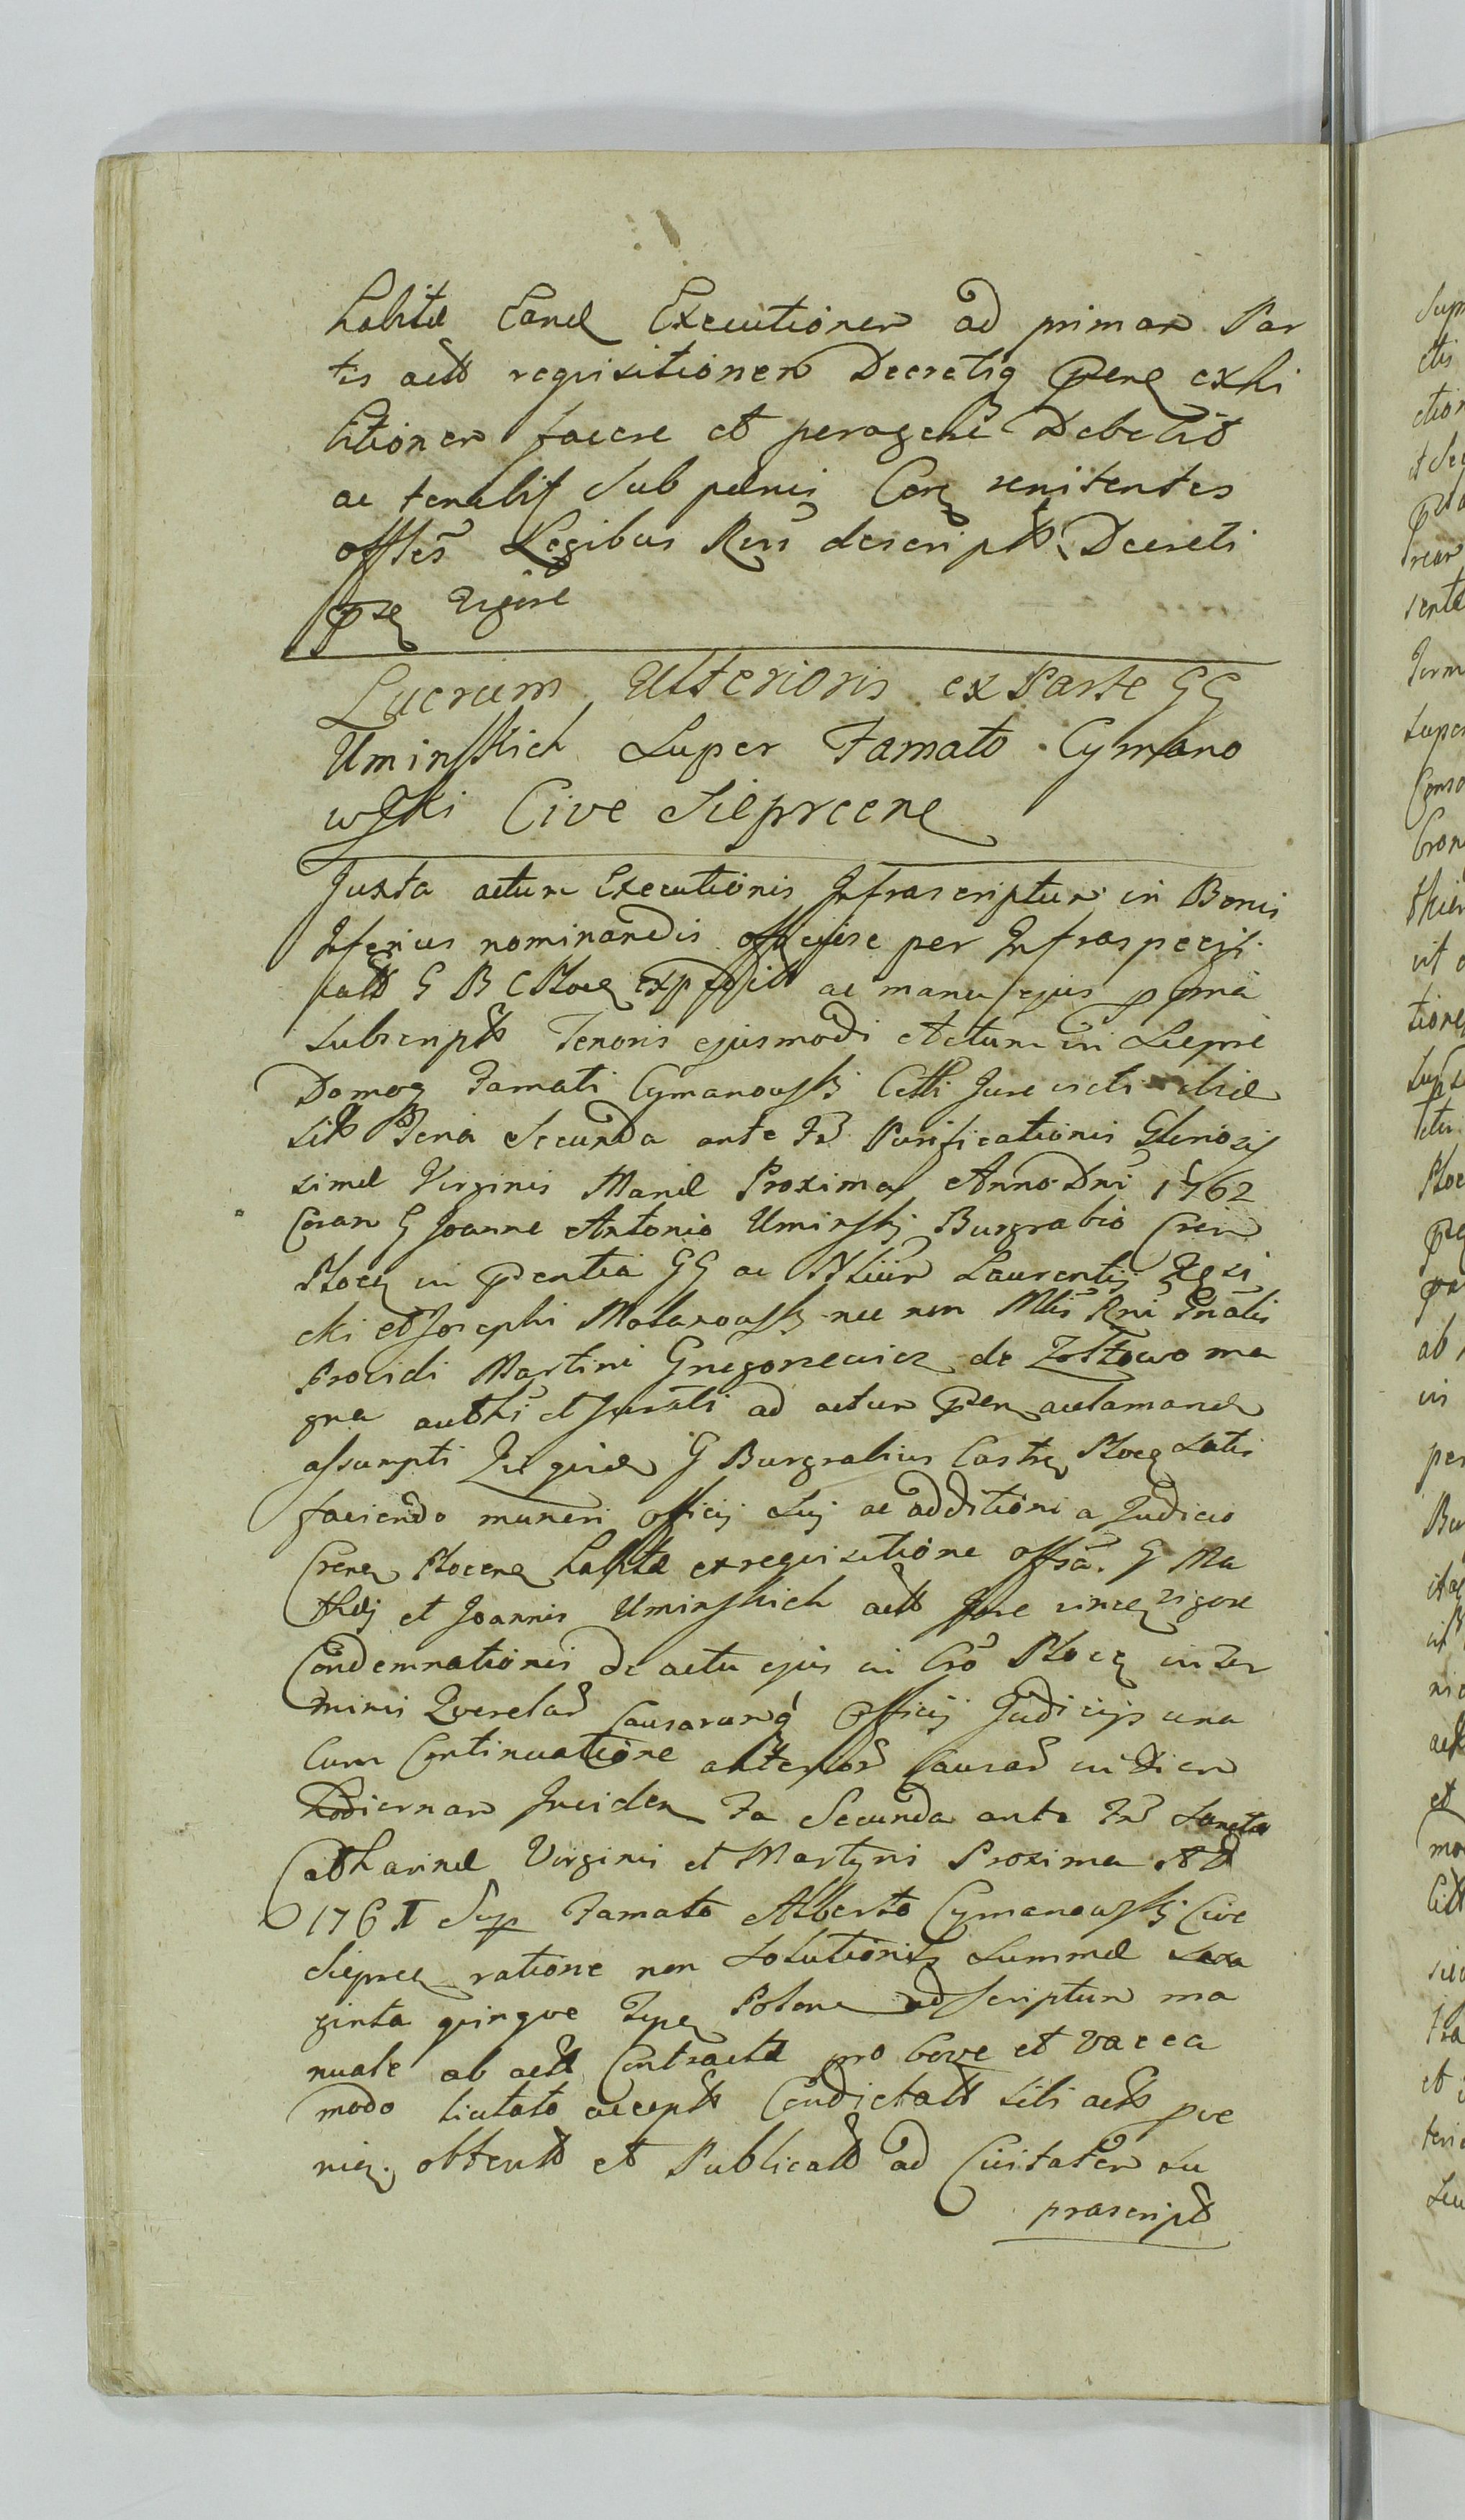 habitæ Eand Executionem ad primam Par
tis actt requisitionem Decretiq pene exhi
bitionem facere et peragere Debebit
ac tenebit sub pœnis Con renitentes
offles Legibus Rni descriptt Decreti
pse vigore
Lucrum Ulterioris ex Parte GG
Uminskich Super Famato Cymano
wski Cive Sieprcen
Juxta actum Executionis Infrascriptum in Bonis
Inferius nominandis officiose per Infraspecifi
catt G B C Ploc Expedit ac manu ejus ppria
subscriptt Tenoris ejusmodi Actum in Siepre
Domoq Famati Cymanowski Citti Jure victi
sitt Feria Secunda ante Fm Purificationis Gloriosis
simæ Virginis Mariæ Proxima Anno Dni 1762
Coram G Joanne Antonio Uminski Burgrabio Cren
Ploc in Pentia GG ac Nliúm Laurentij
cki et Josephi Mołanowski nec non Mtis Rni Gnalis
Providi Martini Gregorzewicz de Zołtowo ma
gna authi et Jurati ad actum Pen acclamand
assumpti Qui quid G Burgrabius Castr Ploc satis
faciendo muneri officij sui ac additioni a Judicio
Cren Plocen habitæ ex requisitione offsa. G Ma
thæj et Joannis Uminskich actt Jure vinc vigore
Condemnationis de actu ejus in Cro Ploc in ter
minis Querelar Causarumq Officij Judicijs una
cum Continuatione anterior Causar in Diem
hodiernam Inciden Fa Secunda ante Fm Sanctæ
Catharinæ Virginis et Martyris Proxima A D
1761 Sup Famato Alberto Cymanowski Cive
Sieprc ratione non Solutionis Summæ sexa
ginta quinque Tynf Polon ad scriptum ma
nuale ab actt Contractæ pro bove et vacca
modo licitato acceptt Condictatt sibi actt pve
nien. obtentt et Publicatt ad Civitatem su
prascriptt